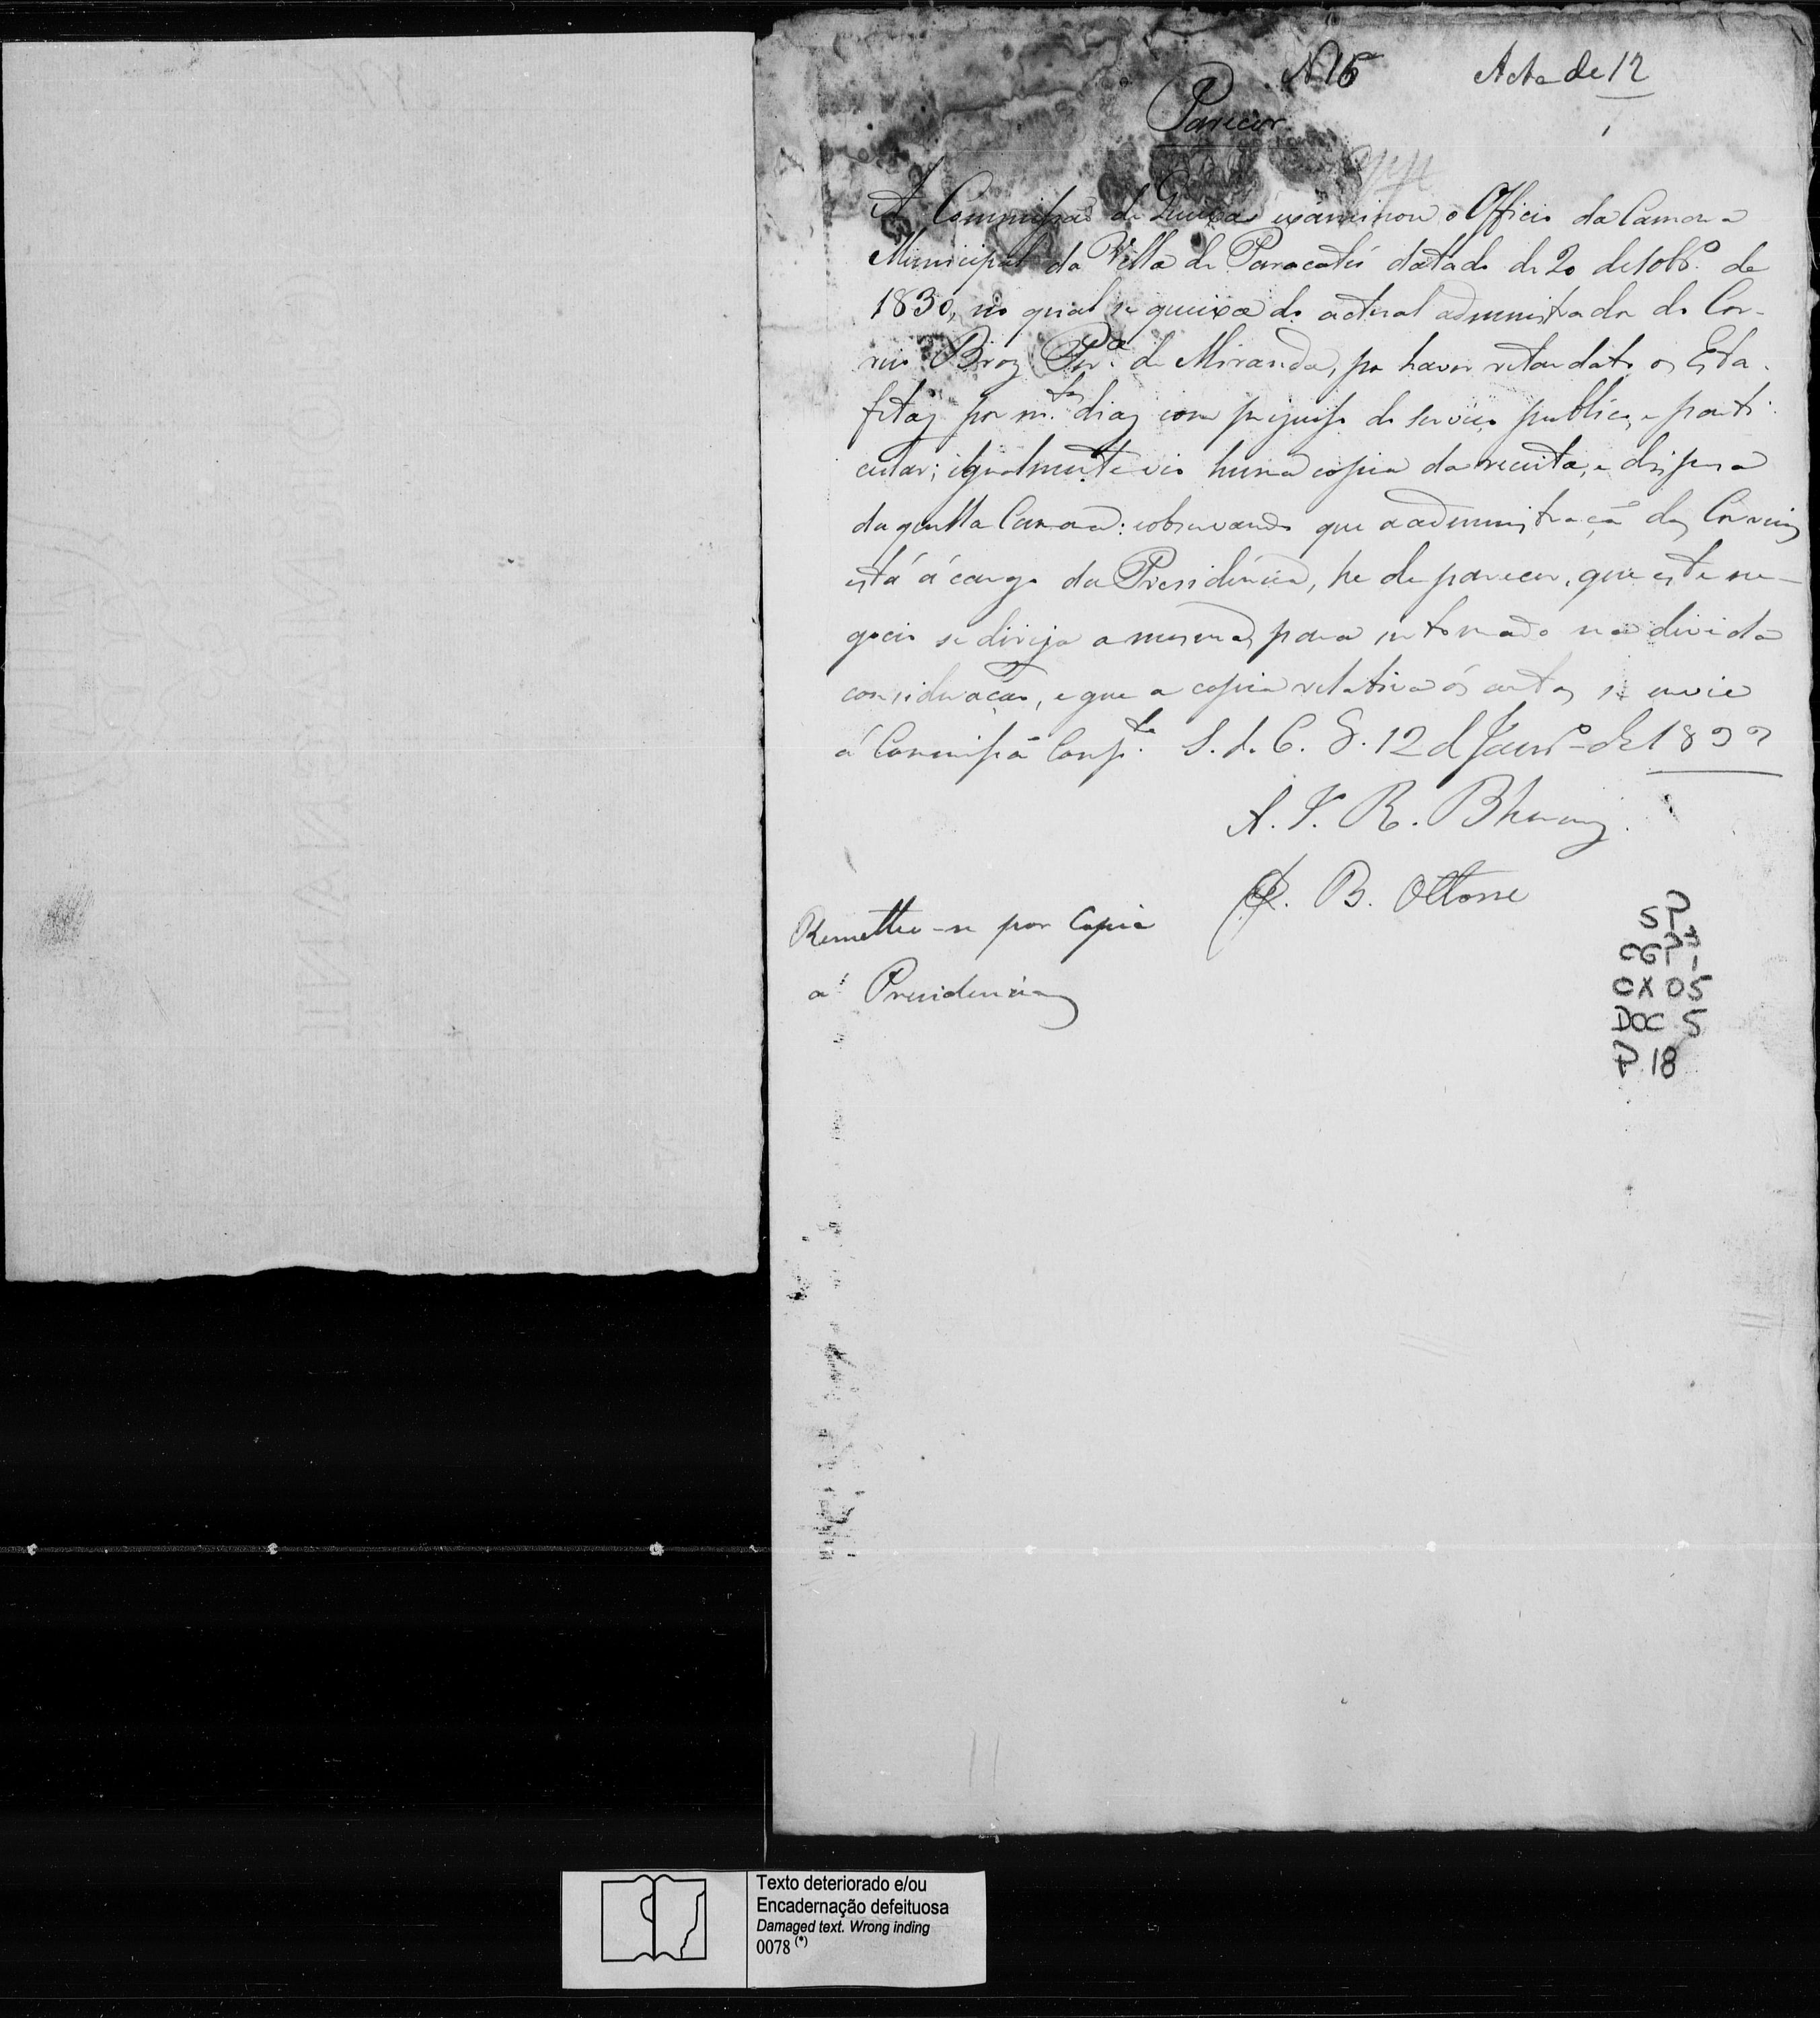 N 15 Acta de 12
Parecer
A Commissaõ de Queixas examinou o Officio da Camara
Municipal da Villa de Paracatú datado de 20 de 10br.º de
1830, no qual se queixa do actual administrador do Cor-
reio Braz Per.ª de Miranda, por haver retardado os Esta-
fetas por m.tos dias com prejuiso do serviço publico, e parti-
cular; igualmente vio huma copia da receita, e despesa
daquella Camara: e observando que a administraçaõ dos Correios
está á cargo da Presidencia, he de parecer, que este ne-
gocio se dirija a mesma, para ser tomado na divida
consideraçaõ, e que a copia relativa ás contas se envie
á Commissaõ Comp.te S. d. C. G. 12 d Janr.º de 1832
A. J. R. Bhering.
J. B. Ottoni
Remetteu-se por Copia
a Presidencia
SP
CGP 1
CX 05
DOC 5
P. 18
Texto deteriorado e/ou
Encadernação defeituosa
Damaged text. Wrong inding
0078 (*)